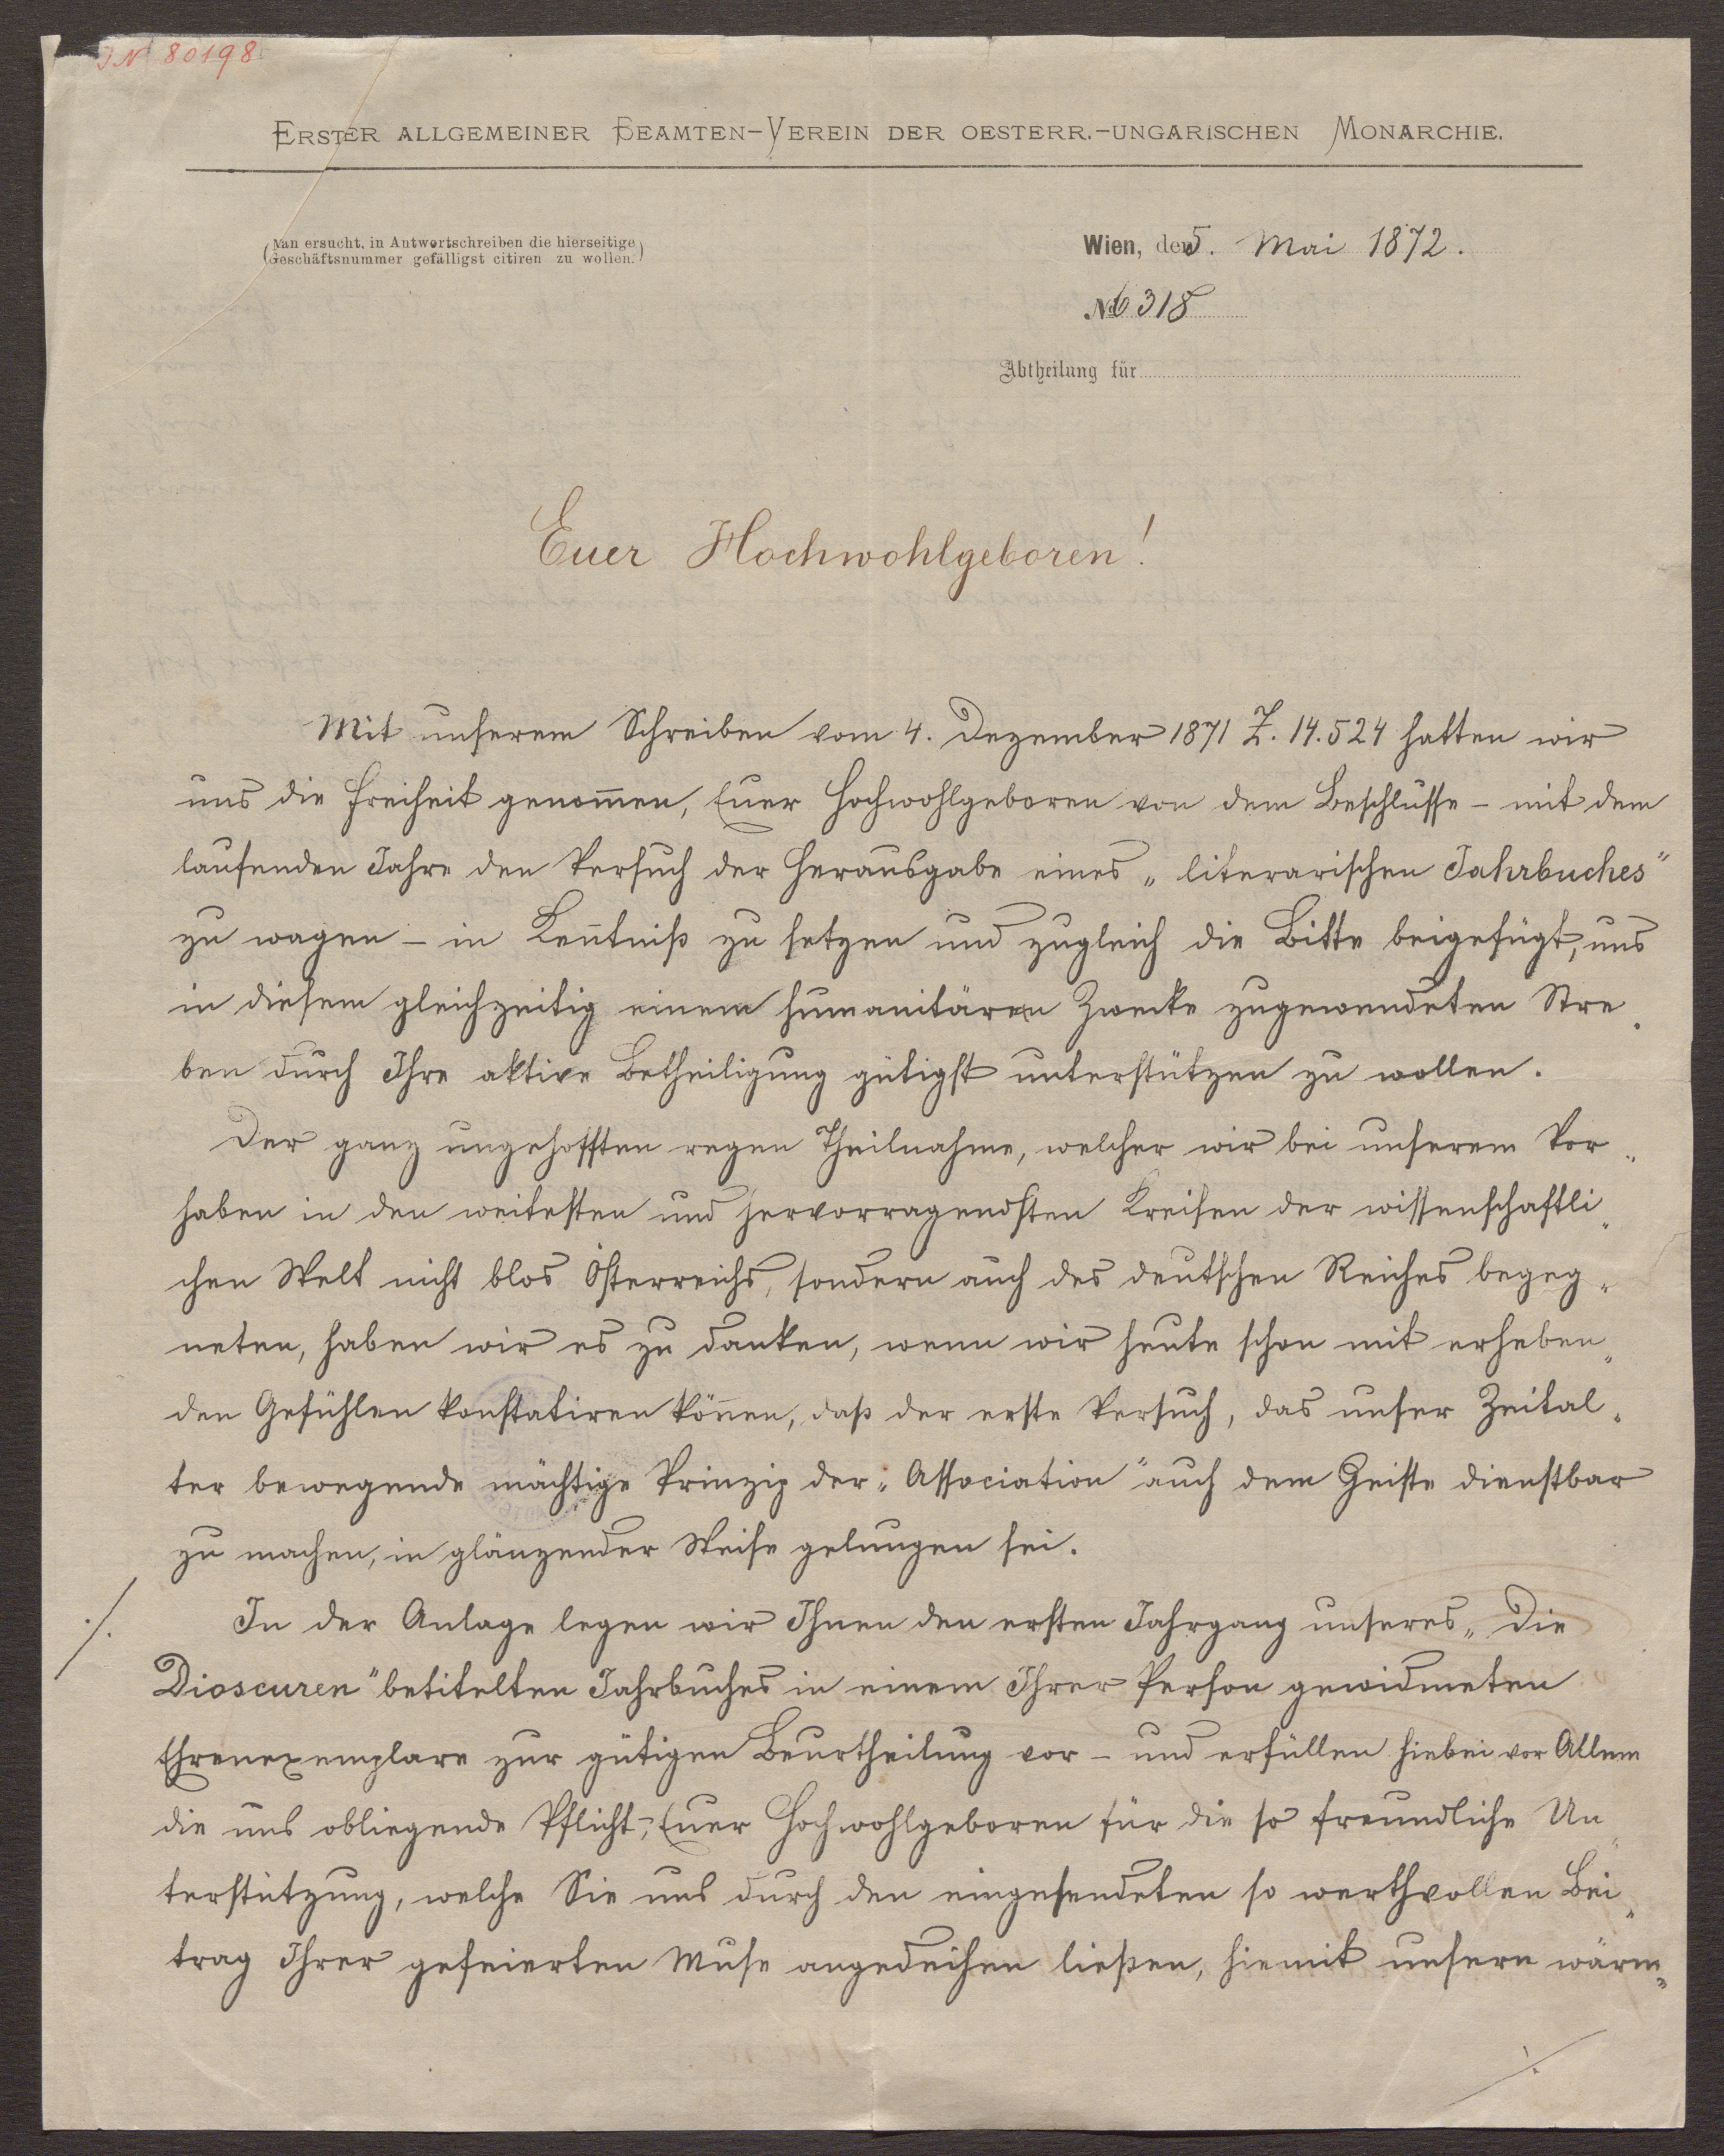 IN 80198
ERSTER ALLGEMEINER BEAMTEN-VEREIN DER OESTERR.-UNGARISCHEN MONARCHIE.
(Man ersucht, in Antwortschreiben die hierseitige
Geschäftsnummer gefälligst citiren zu wollen.)
Wien, den 5. Mai 1872.
No 6318
Abtheilung für
Euer Hochwohlgeboren!
Mit unserem Schreiben vom 4. Dezember 1871 Z. 14.524 hatten wir
uns die Freiheit genom̄en, Euer Hochwohlgeboren von dem Beschlusse – mit dem
laufenden Jahre den Versuch der Herausgabe eines „literarischen Jahrbuches"
zu wagen – in Ken̄tniß zu setzen und zugleich die Bitte beigefügt, uns
in diesem gleichzeitig einem humanitären Zwecke zugewendeten Stre„
ben durch Ihre aktive Betheiligung gütigst unterstützen zu wollen.
Der ganz ungehofften regen Theilnahme, welcher wir bei unserem Vor„
haben in den weitesten und hervorragendsten Kreisen der wissenschaftli„
chen Welt nicht blos Österreichs, sondern auch des deutschen Reiches begeg„
neten, haben wir es zu danken, wenn wir heute schon mit erheben„
den Gefühlen konstatiren kön̄en, daß der erste Versuch, das unser Zeital„
ter bewegende mächtige Prinzip der „Association" auch dem Geiste dienstbar
zu machen, in glänzender Weise gelungen sei.
./. In der Anlage legen wir Ihnen den ersten Jahrgang unseres „Die
Dioscuren" betitelten Jahrbuches in einem Ihrer Person gewidmeten
Ehrenexemplare zur gütigen Beurtheilung vor – und erfüllen hiebei vor Allem
die uns obliegende Pflicht, Euer Hochwohlgeboren für die so freundliche Un„
terstützung, welche Sie uns durch den eingesendeten so werthvollen Bei„
trag Ihrer gefeierten Muse angedeihen ließen, hiemit unsern wärm„
./.